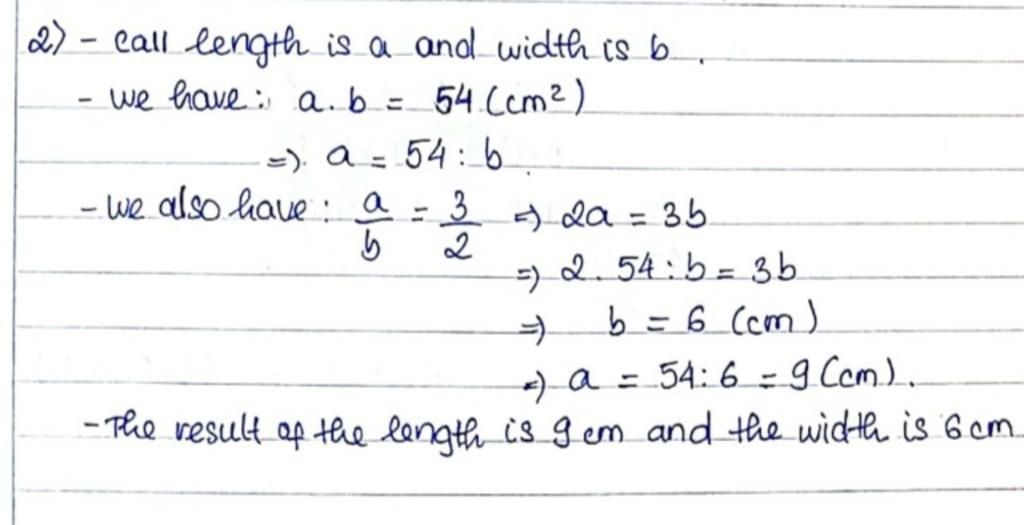 2) - Call length is a and width is b.
- we have: a.b = 54 (cm²)
=) a = 54 : b
- We also have: a/b = 3/2 =) 2a = 3b
=) 2. 54 : b = 3b
=) b = 6 (cm)
=) a = 54 : 6 = 9 (cm).
- The result of the length is 9 cm and the width is 6 cm